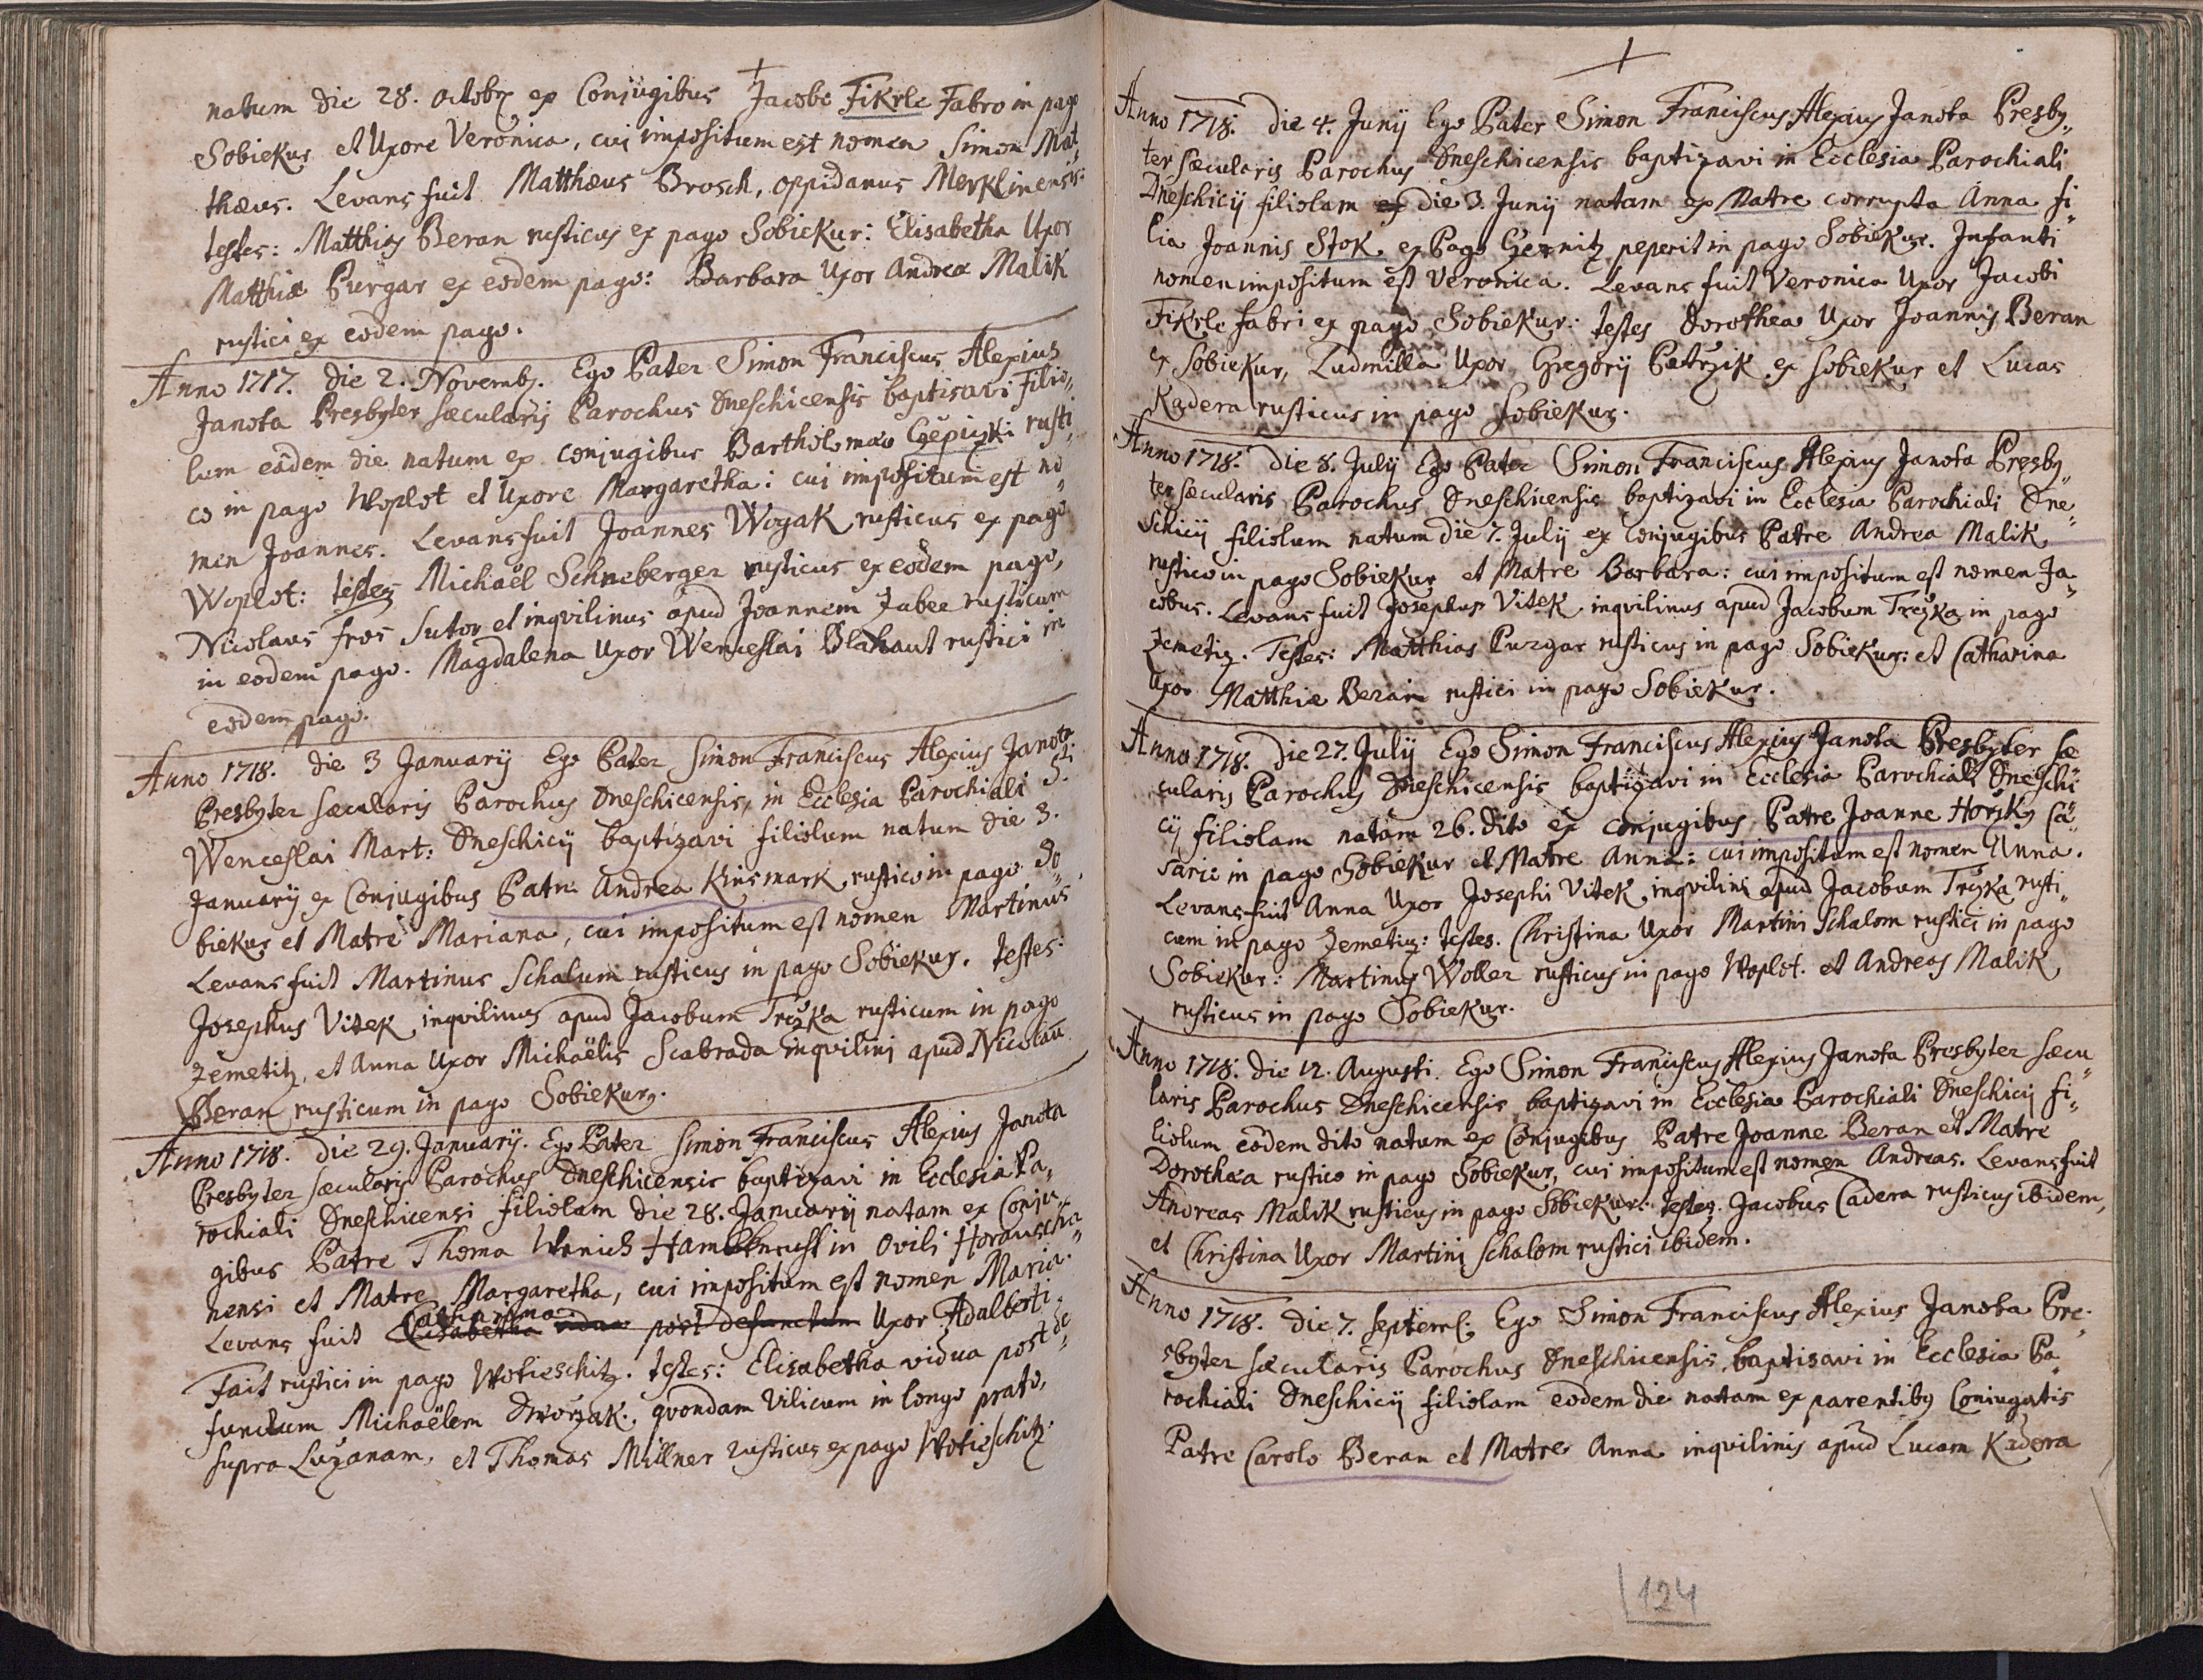 natum die 28. octobr ex Conjugibus Jacobo Fikrle Fabro in pago
Sobiekur et Uxore Veronica, cui impositum est nomen Simon Mat„
thæus. Levans fuit Matthæus Brosch, oppidanus Merklinensis:
testes: Matthias Beran rusticus ex pago Sobiekur: Elisabetha Uxor
Matthiæ Purgar ex eodem pago: Barbara Uxor Andreæ Malik
rustici ex eodem pago.
Anno 1717. die 2. Novemb. Ego Pater Simon Franciscus Alexius
Janota Presbyter sæcularis Parochus Dneschicensis baptisavi Filio„
lum eâdem die natum ex conjugibus Bartholomæo Czepiczki rusti„
co in pago Woplot et Uxore Margaretha: cui impositum est no„
men Joannes. Levans fuit Joannes Woyak rusticus ex pago
Woplot: testes Michaël Schneberger rusticus ex eodem pago,
Nicolaus Fros Sutor et inqvilinus apud Joannem Zabee rusticum
in eodem pago. Magdalena Uxor Wenceslai Blahaut rustici in
eodem pago.
Anno 1718. die 3 January Ego Pater Simon Franciscus Alexius Janota
Presbyter sæcularis Parochus Dneschicensis, in Ecclesia Parochiali S:ti
Wenceslai Mart: Dneschicij baptizavi filiolum natum die 3.
January ex Conjugibus Patre Andrea Kinsmark rustico in pago So„
biekur et Matre Mariana, cui impositum est nomen Martinus
Levans fuit Martinus Schalum rusticus in pago Sobiekur. testes:
Josephus Vitek inqvilinus apud Jacobum Trczka rusticum in pago
Zemetitz, et Anna Uxor Michaëlis Scabrada inqvilini apud Nicolaū
Beran rusticum in pago Sobiekur.
Anno 1718. die 29. January. Ego Pater Simon Franciscus Alexius Janota
Presbyter sæcularis Parochus Dneschicensis baptizavi in Ecclesia Pa„
rochiali Dneschicensi filiolam die 28. January natam ex Conju„
gibus Patre Thoma Wanich Hambknecht in Ovili Horauscha„
nensi et Matre Margaretha, cui impositum est nomen Maria.
Catharina
Levans fuit Elisabetha vidua post defunctum Uxor Adalberti
Fait rustici in pago Wotieschitz. testes: Elisabetha vidua post de„
functum Michaëlem Dworzak, qvondam Vilicum in longo prato,
supra Luzanam, et Thomas Millner rusticus ex pago Wotieschitz.
Anno 1718. die 4. Junij Ego Pater Simon Franciscus Alexius Janota Presby„
ter sæcularis Parochus Dneschicensis baptizavi in Ecclesia Parochiali
Dneschicij filiolam ex die 3. Junij natam ex Matre corrupta Anna fi„
lia Joannis Stok ex Pago Czernitz peperit in pago Sobiekur. Infanti
nomen impositum est Veronica. Levans fuit Veronica Uxor Jacobi
Fikrle fabri ex pago Sobiekur: testes Dorothea Uxor Joannis Beran
ex Sobiekur, Ludmilla Uxor Gregorij Petrzik ex Sobiekur et Lucas
Kadera rusticus in pago Sobiekur.
Anno 1718. die 8. Julij Ego Pater Simon Franciscus Alexius Janota Presby„
ter sæcularis Parochus Dneschicensis baptizavi in Ecclesia Parochiali Dne„
schicij filiolum natum die 7. Julij ex Conjugibus Patre Andrea Malik
rustico in pago Sobiekur et Matre Barbara: cui impositum est nomen Ja„
cobus. Levans fuit Josephus Vitek inqvilinus apud Jacobum Trczka in pago
Zemetiz. Testes: Matthias Purgar rusticus in pago Sobiekur: et Catharina
Uxor Matthiæ Beran rustici in pago Sobiekur.
Anno 1718. Die 27. Julij Ego Simon Franciscus Alexius Janota Presbyter sæ„
cularis Parochus Dneschicensis baptizavi in Ecclesia Parochiali Dneschi„
cij filiolam natam 26. dito ex conjugibus Patre Joanne Horsky Ca„
sario in pago Sobiekur et Matre Anna: cui impositum est nomen Anna.
Levans fuit Anna Uxor Josephi Vitek inqvilini apud Jacobum Trczka rusti„
cum in pago Zemetitz: testes. Christina Uxor Martini Schalom rustici in pago
Sobiekur: Martinus Woller rusticus in pago Woplot. et Andreas Malik
rusticus in pago Sobiekur.
Anno 1718. die 12. Augusti. Ego Simon Franciscus Alexius Janota Presbyter sæcu„
laris Parochus Dneschicensis baptizavi in Ecclesia Parochiali Dneschicij fi„
liolum eôdem dito natum ex Conjugibus Patre Joanne Beran et Matre
Dorothæa rustico in pago Sobiekur, cui impositum est nomen Andreas. Levans fuit
Andreas Malik rusticus in pago Sobiekur: testes. Jacobus Cadera rusticus ibidem,
et Christina Uxor Martini Schalom rustici ibidem.
Anno 1718. die 7. Septemb: Ego Simon Franciscus Alexius Janota Pre„
sbyter sæcularis Parochus Dneschicensis baptisavi in Ecclesia Pa„
rochiali Dneschicij filiolam eodem die natam ex parentibus Coniugatis
Patre Carolo Beran et Matre Anna inqvilinis apud Lucam Kadera
124